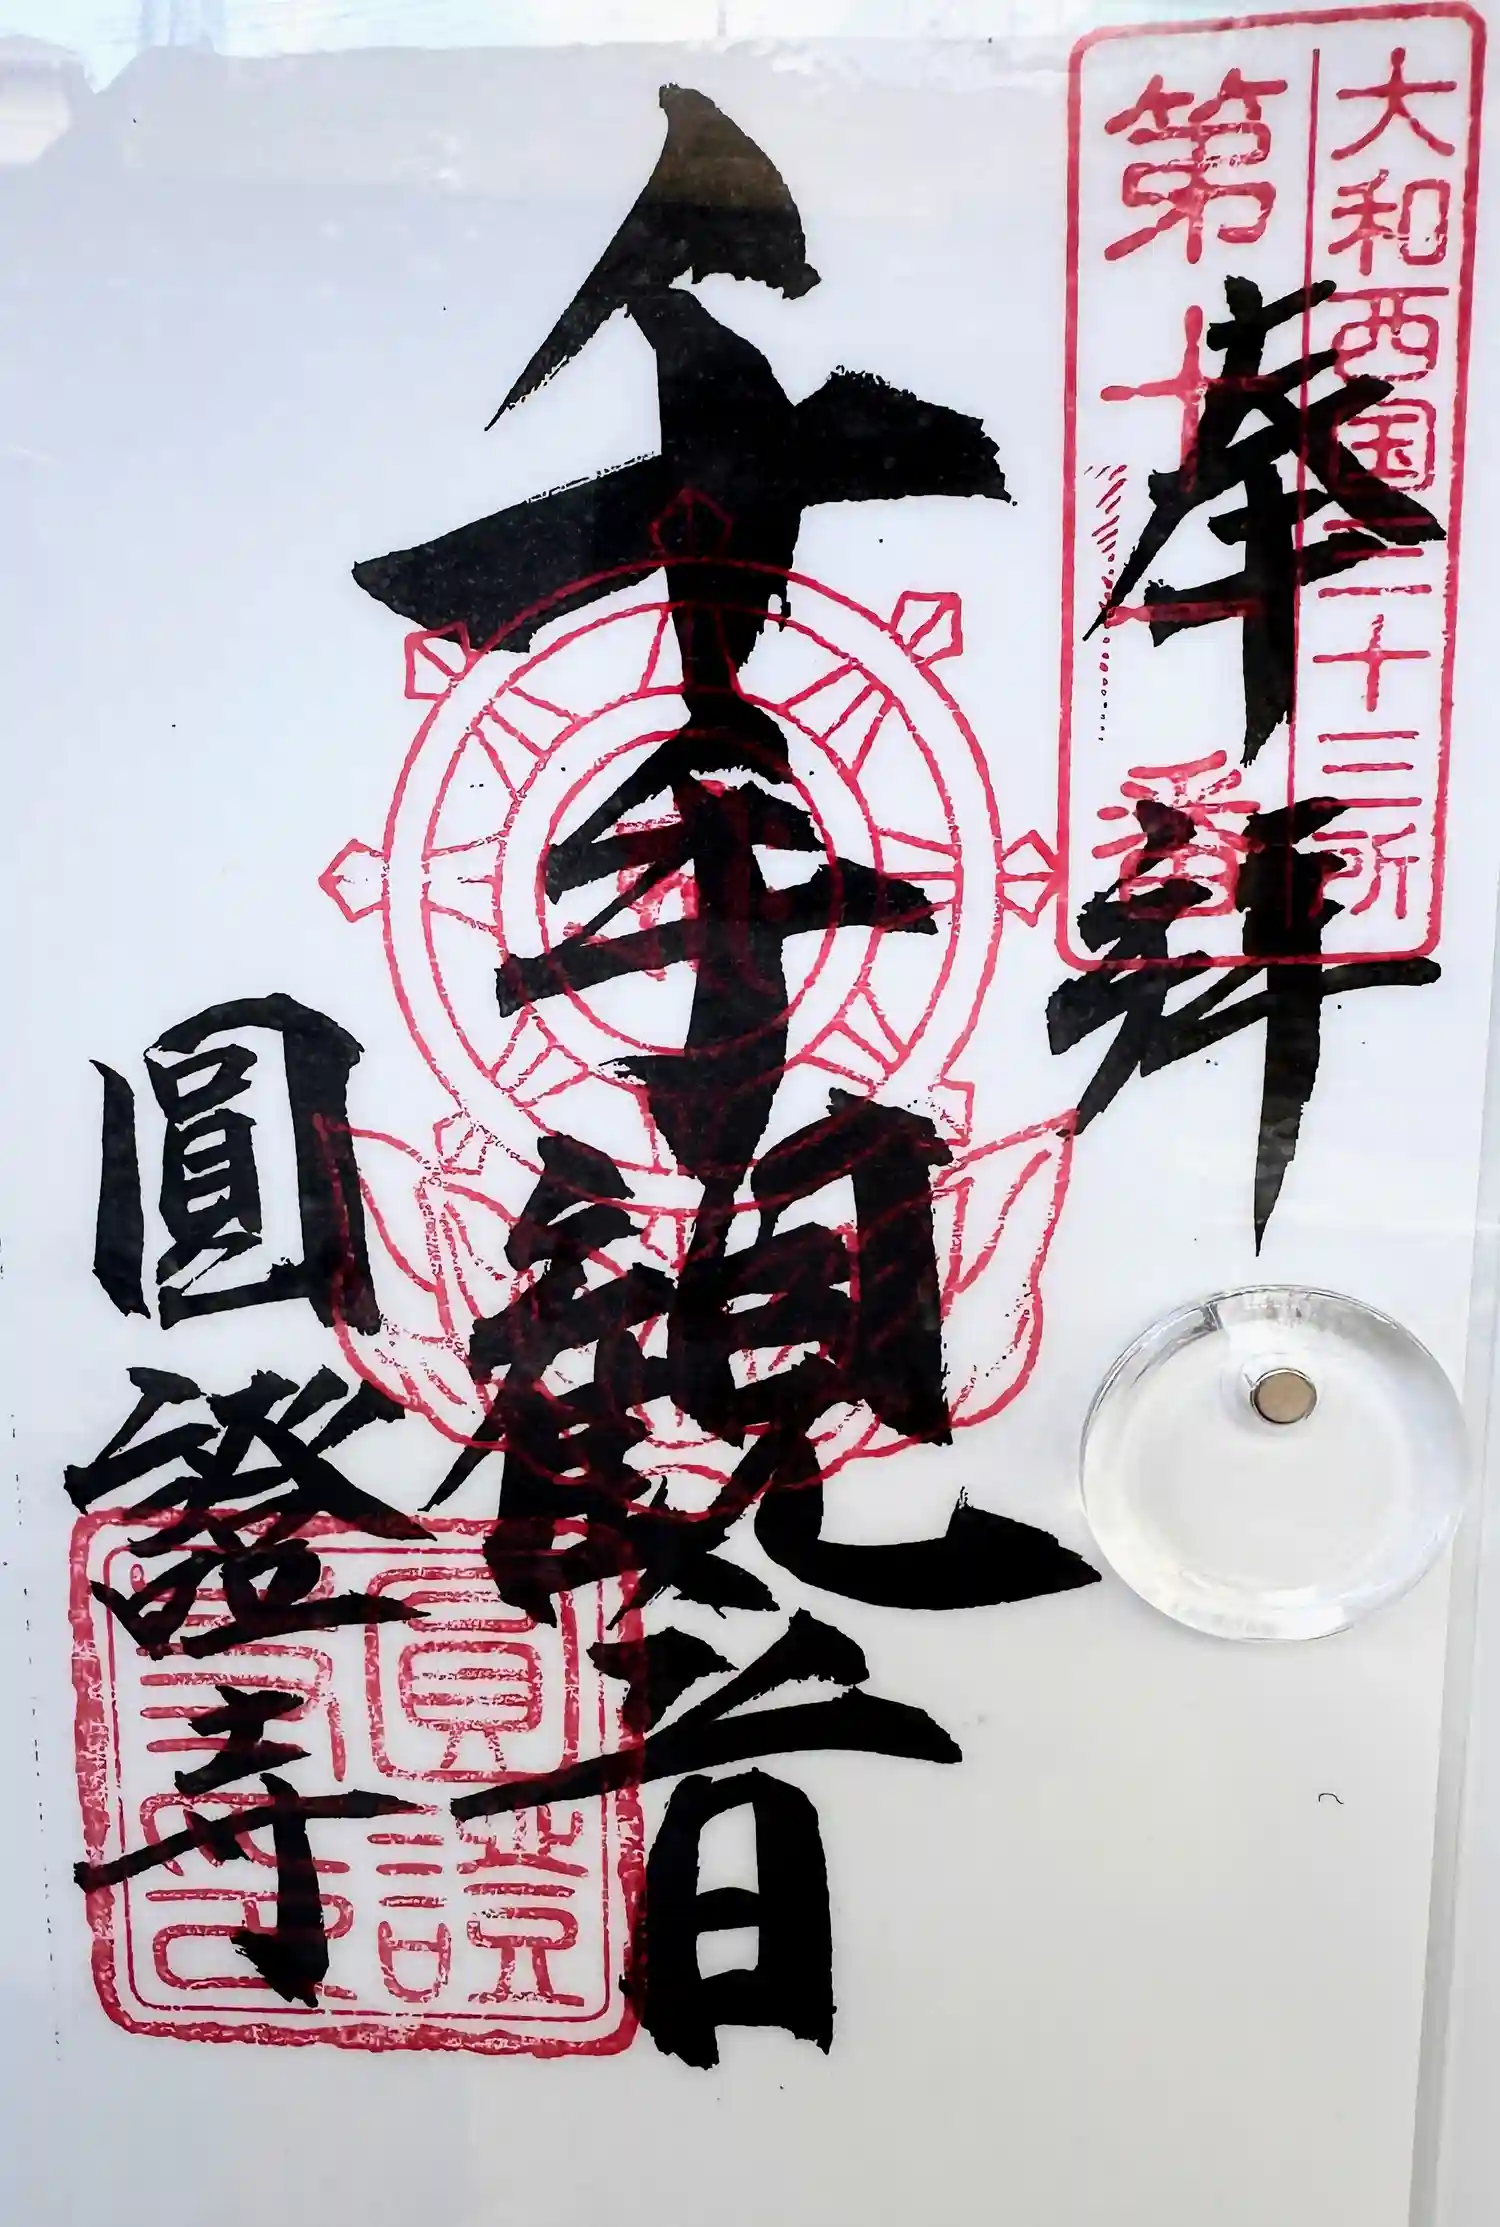 大和西国三十三所
第十一番
奉拜
千手觀音
圓證寺
圓證寺印